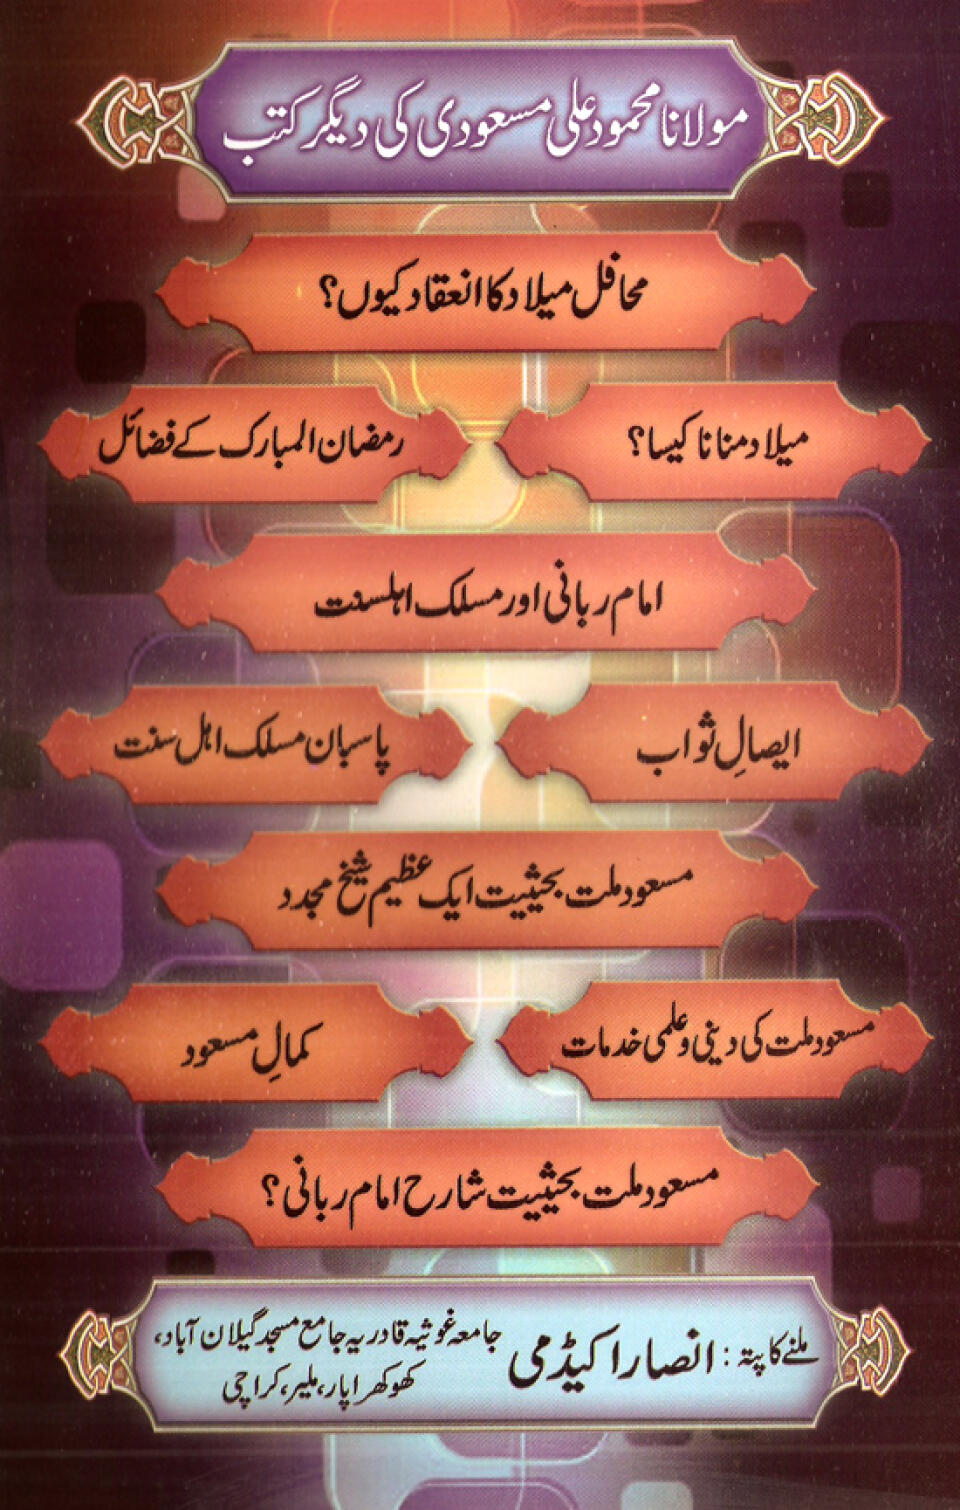 مولانا محمود علی مسعودی کی دیگر کتب
محافل میلاد کا انعقاد کیوں؟
میلاد منانا کیسا؟
رمضان المبارک کے فضائل
امام ربانی اور مسلک اہلسنت
ایصالِ ثواب
پاسبان مسلک اہل سنت
مسعود ملت بحیثیت ایک عظیم شیخ مجدد
مسعود ملت کی دینی و علمی خدمات
کمالِ مسعود
مسعود ملت بحیثیت شارح امام ربانی؟
ملنے کا پتہ : انصار اکیڈمی جامعہ غوثیہ قادریہ جامع مسجد گیلان آباد،
کھوکھراپار، ملیر، کراچی